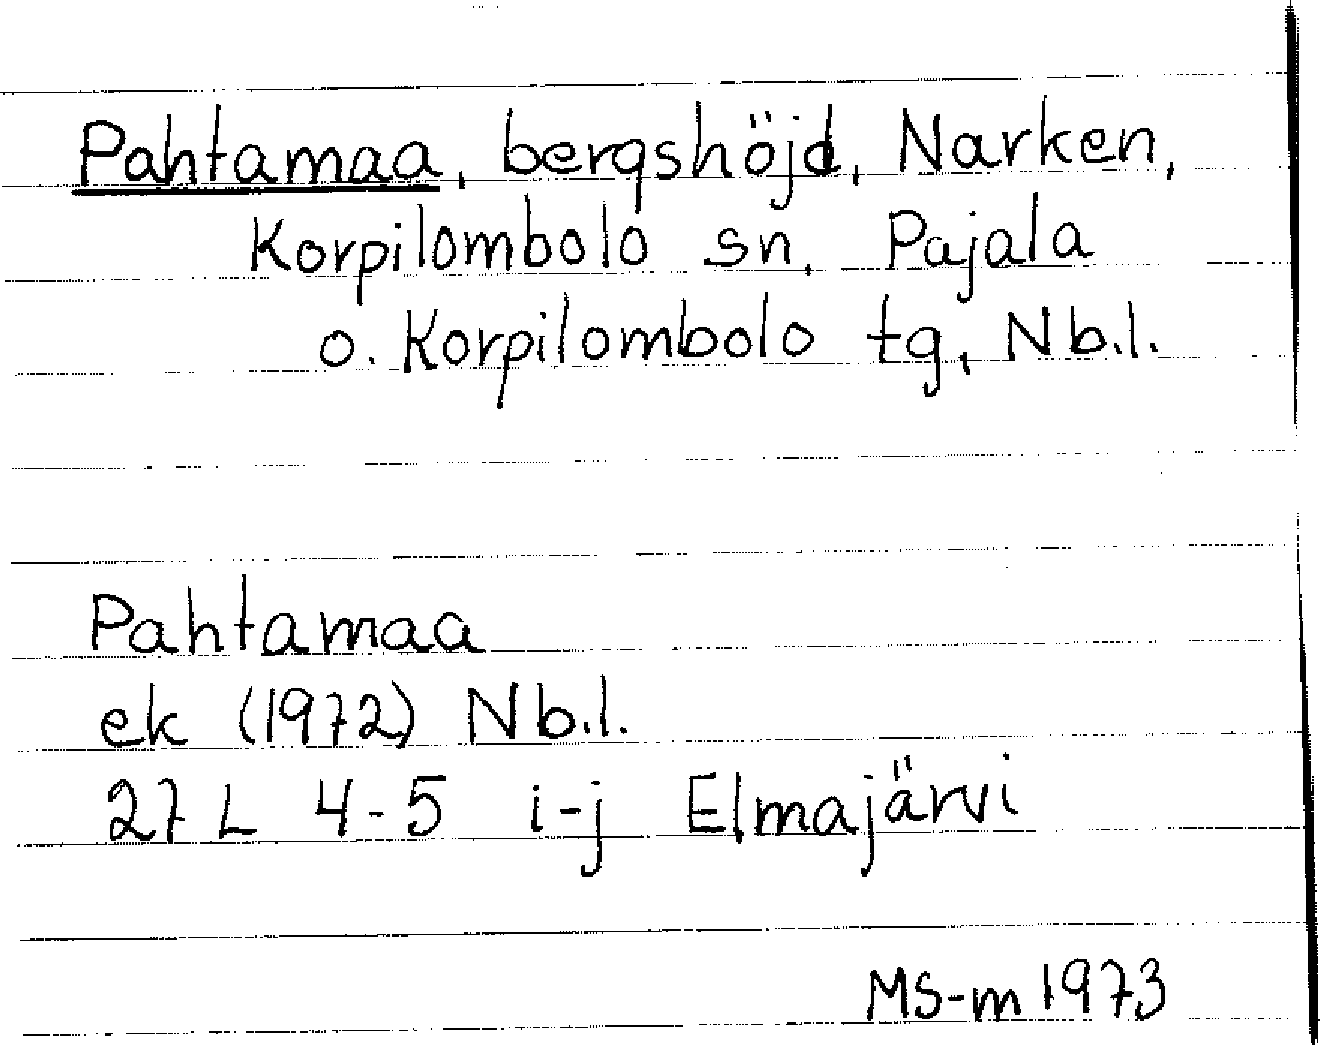 Pahtamaa, bergshöjd, Narken,
Korpilombolo sn, Pajala
o. Korpilombolo tg, Nb.l.
Pahtamaa
ek (1972) Nb.l.
27 L 4-5 i-j Elmajärvi
MS-m 1973